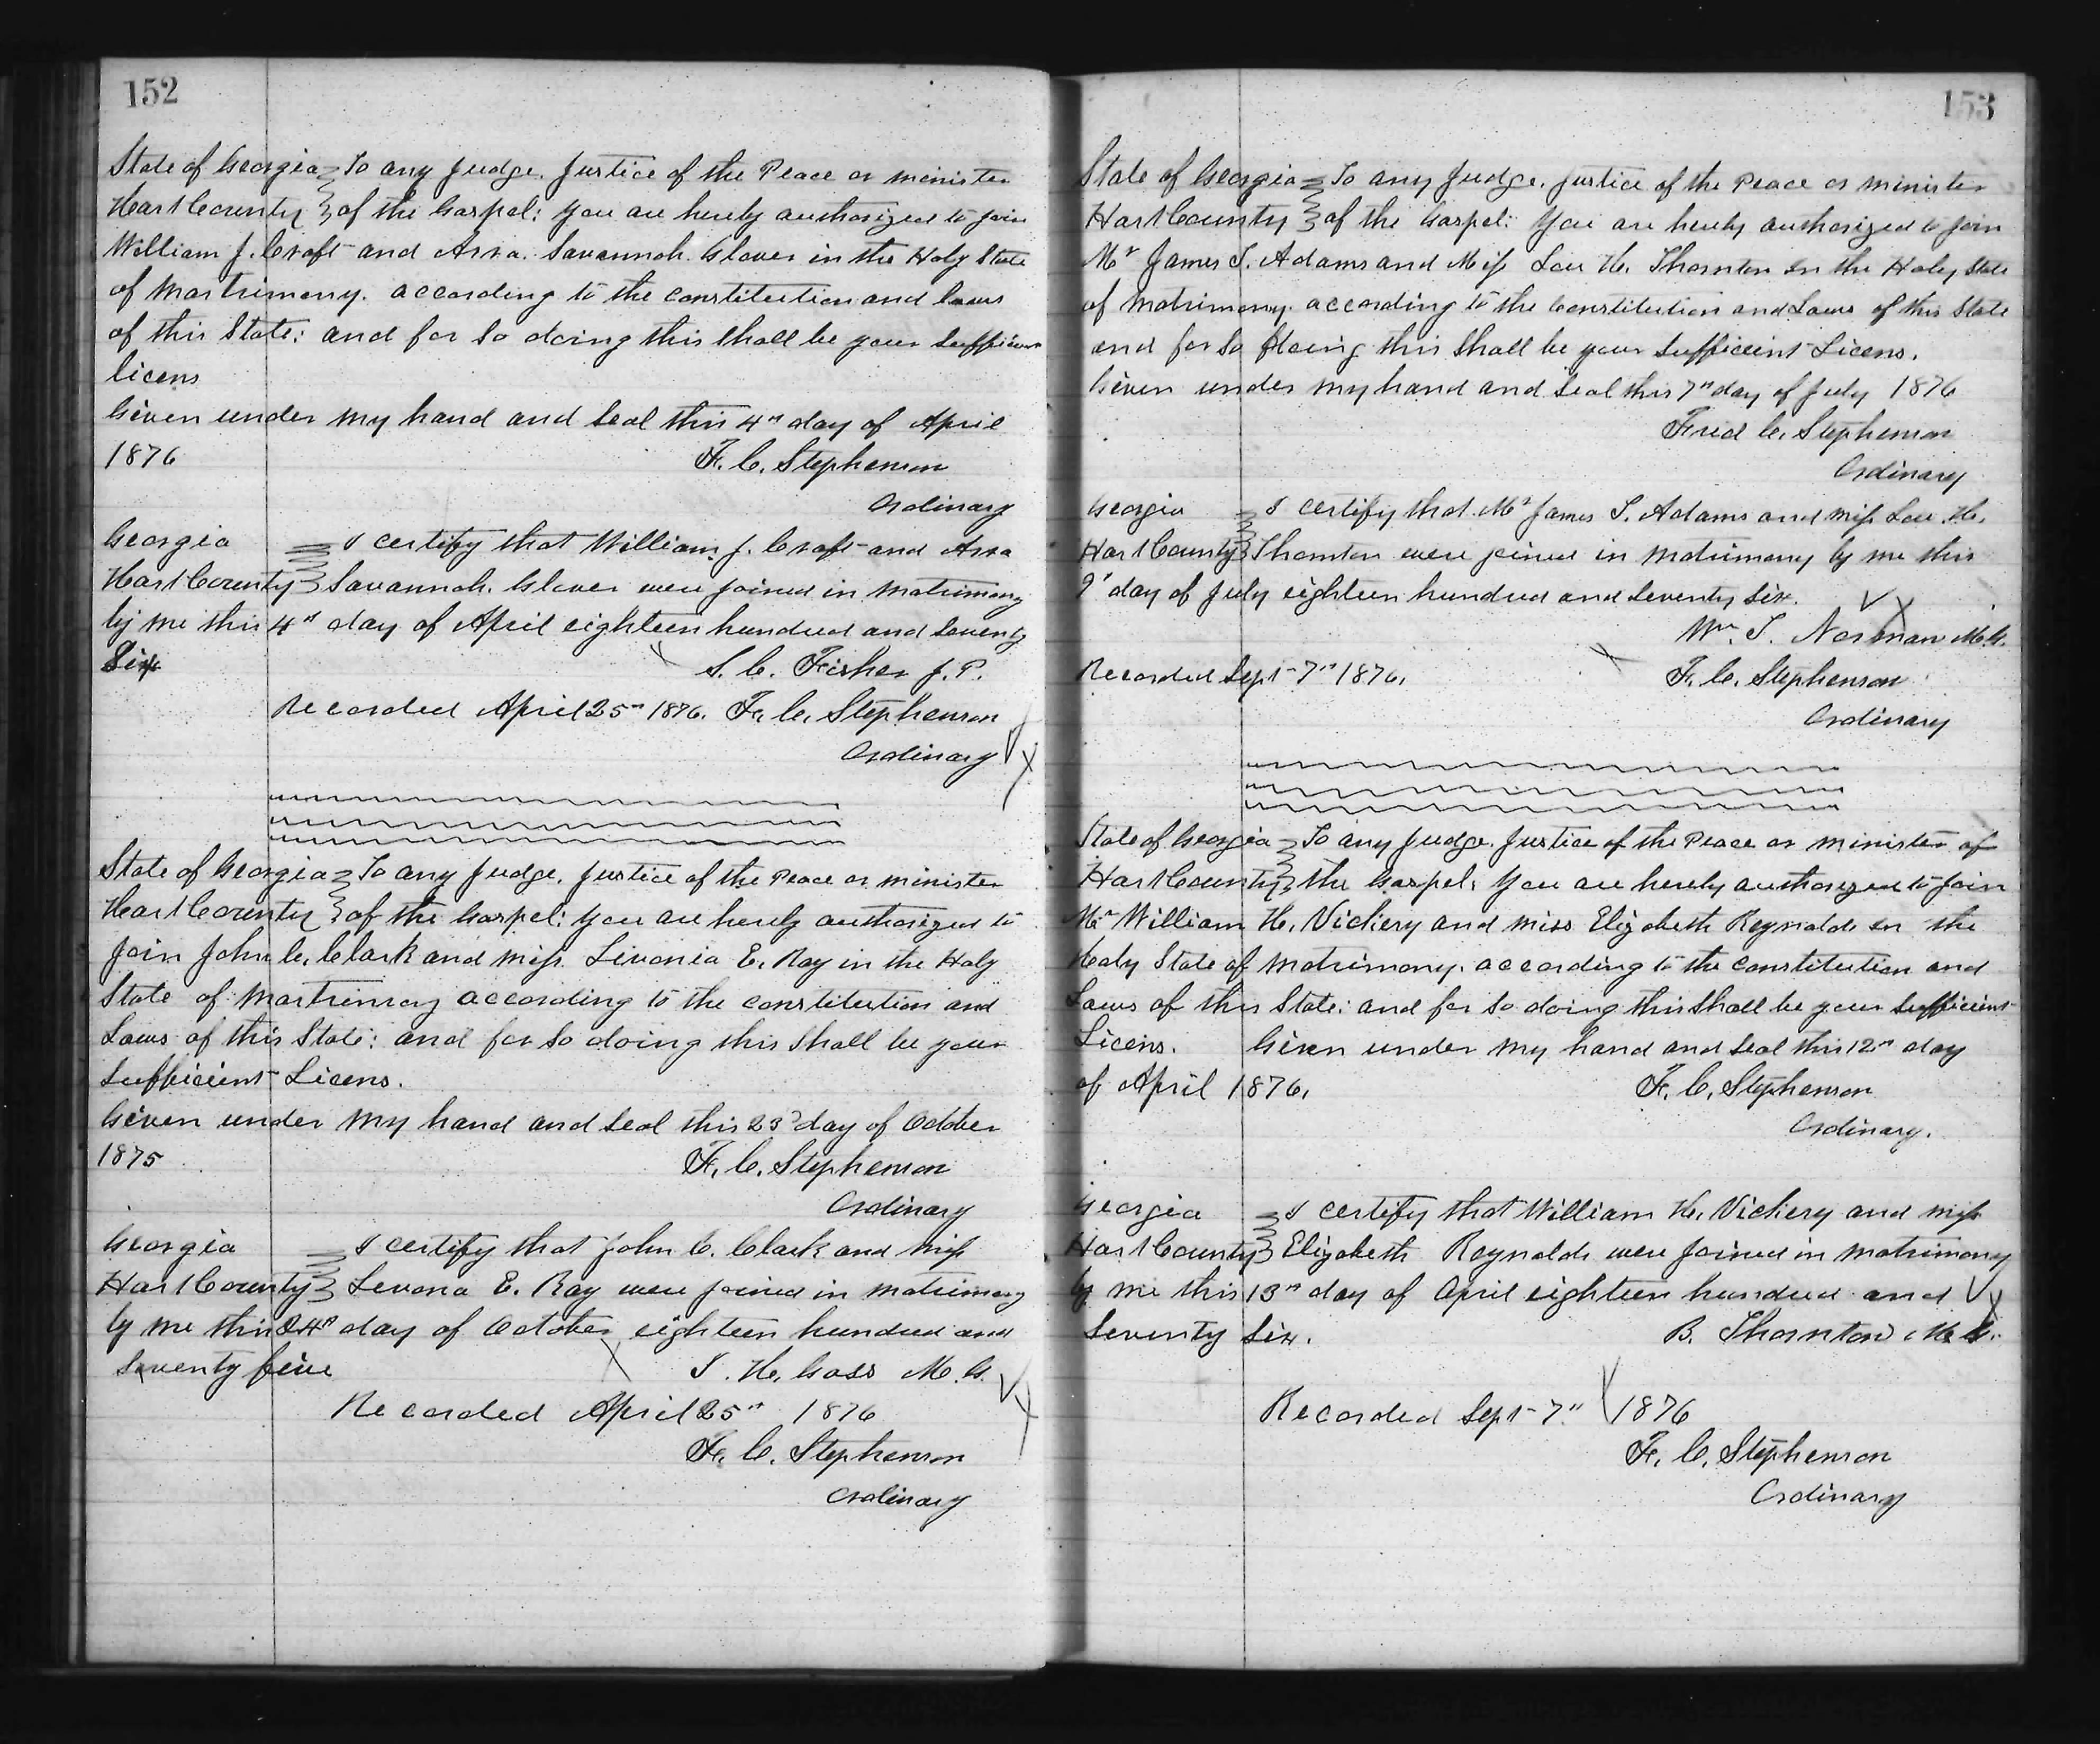 152
State of Georgia To any Judge. Justice of the Peace or minister
Hart County of the Gospel: you are hereby authorized to join
William J. Craft and Arra. Savannah. Glover in the Holy State
of Martrimony. according to the constitution and laws
of this State: and for so doing this shall be your sufficient
licens
Given under my hand and seal this 4th day of April
1876 F. C. Stephenson
Ordinary
Georgia I certify that William J. Craft and Arra
Hart County Savannah. Glover were joined in matrimony
by me this 4th day of April eighteen hundred and seventy
Six S. C. Fisher J. P.
Recorded April 25th 1876. F. C. Stephenson
Ordinary
State of Georgia To any Judge. Justice of the Peace or minister
Hart County of the Gospel: you are hereby authorized to
join John C. Clark and miss Livonia E. Ray in the Holy
State of Martrimoy according to the constitution and
Laws of this State: and for so doing this shall be your
sufficient Licens.
Given under my hand and seal this 23d day of October
1875 F. C. Stephenson
Ordinary
Georgia I certify that John C. Clark and miss
Hart County Levona E. Ray were joined in matrimony
by me this 24th day of October eighteen hundred and
seventy five T. H. Goss M. G.
Recorded April 25th 1876
F. C. Stephenson
Ordinary
153
State of Georgia To any Judge. Justice of the Peace or minister
Hart County of the Gospel: You are hereby authorized to join
Mr James T. Adams and Miss Lou H. Thornton in the Holy State
of matrimony. according to the constitution and Laws of this State
and for so doing this shall be your sufficient Licens.
Given under my hand and seal this 7th day of July 1876
Fred C. Stephenson
Ordinary
Georgia I certify that Mr James T. Adams and miss Lou H.
Hart County Thornton were joined in matrimony by me this
9' day of July eighteen hundred and seventy six.
Wm T. Norman M.G.
Recorded Sept 7th 1876. F. C. Stephenson
Ordinary
State of Georgia To any Judge. Justice of the Peace or minister of
Hart County the Gospel: You are hereby authorized to join
Mr William H. Vickery and miss Elizabeth Reynolds in the
Holy State of matrimony. according to the constitution and
Laws of this State: and for so doing this shall be your sufficient
Licens. Given under my hand and seal this 12th day
of April 1876. F. C. Stephenson
Ordinary.
Georgia I certify that William H. Vickery and miss
Hart County Elizabeth Reynolds were joined in matrimony
by me this 13th day of April eighteen hundred and
Seventy six. B. Thornton M. G.
Recorded Sept 7th 1876
F. C. Stephenson
Ordinary